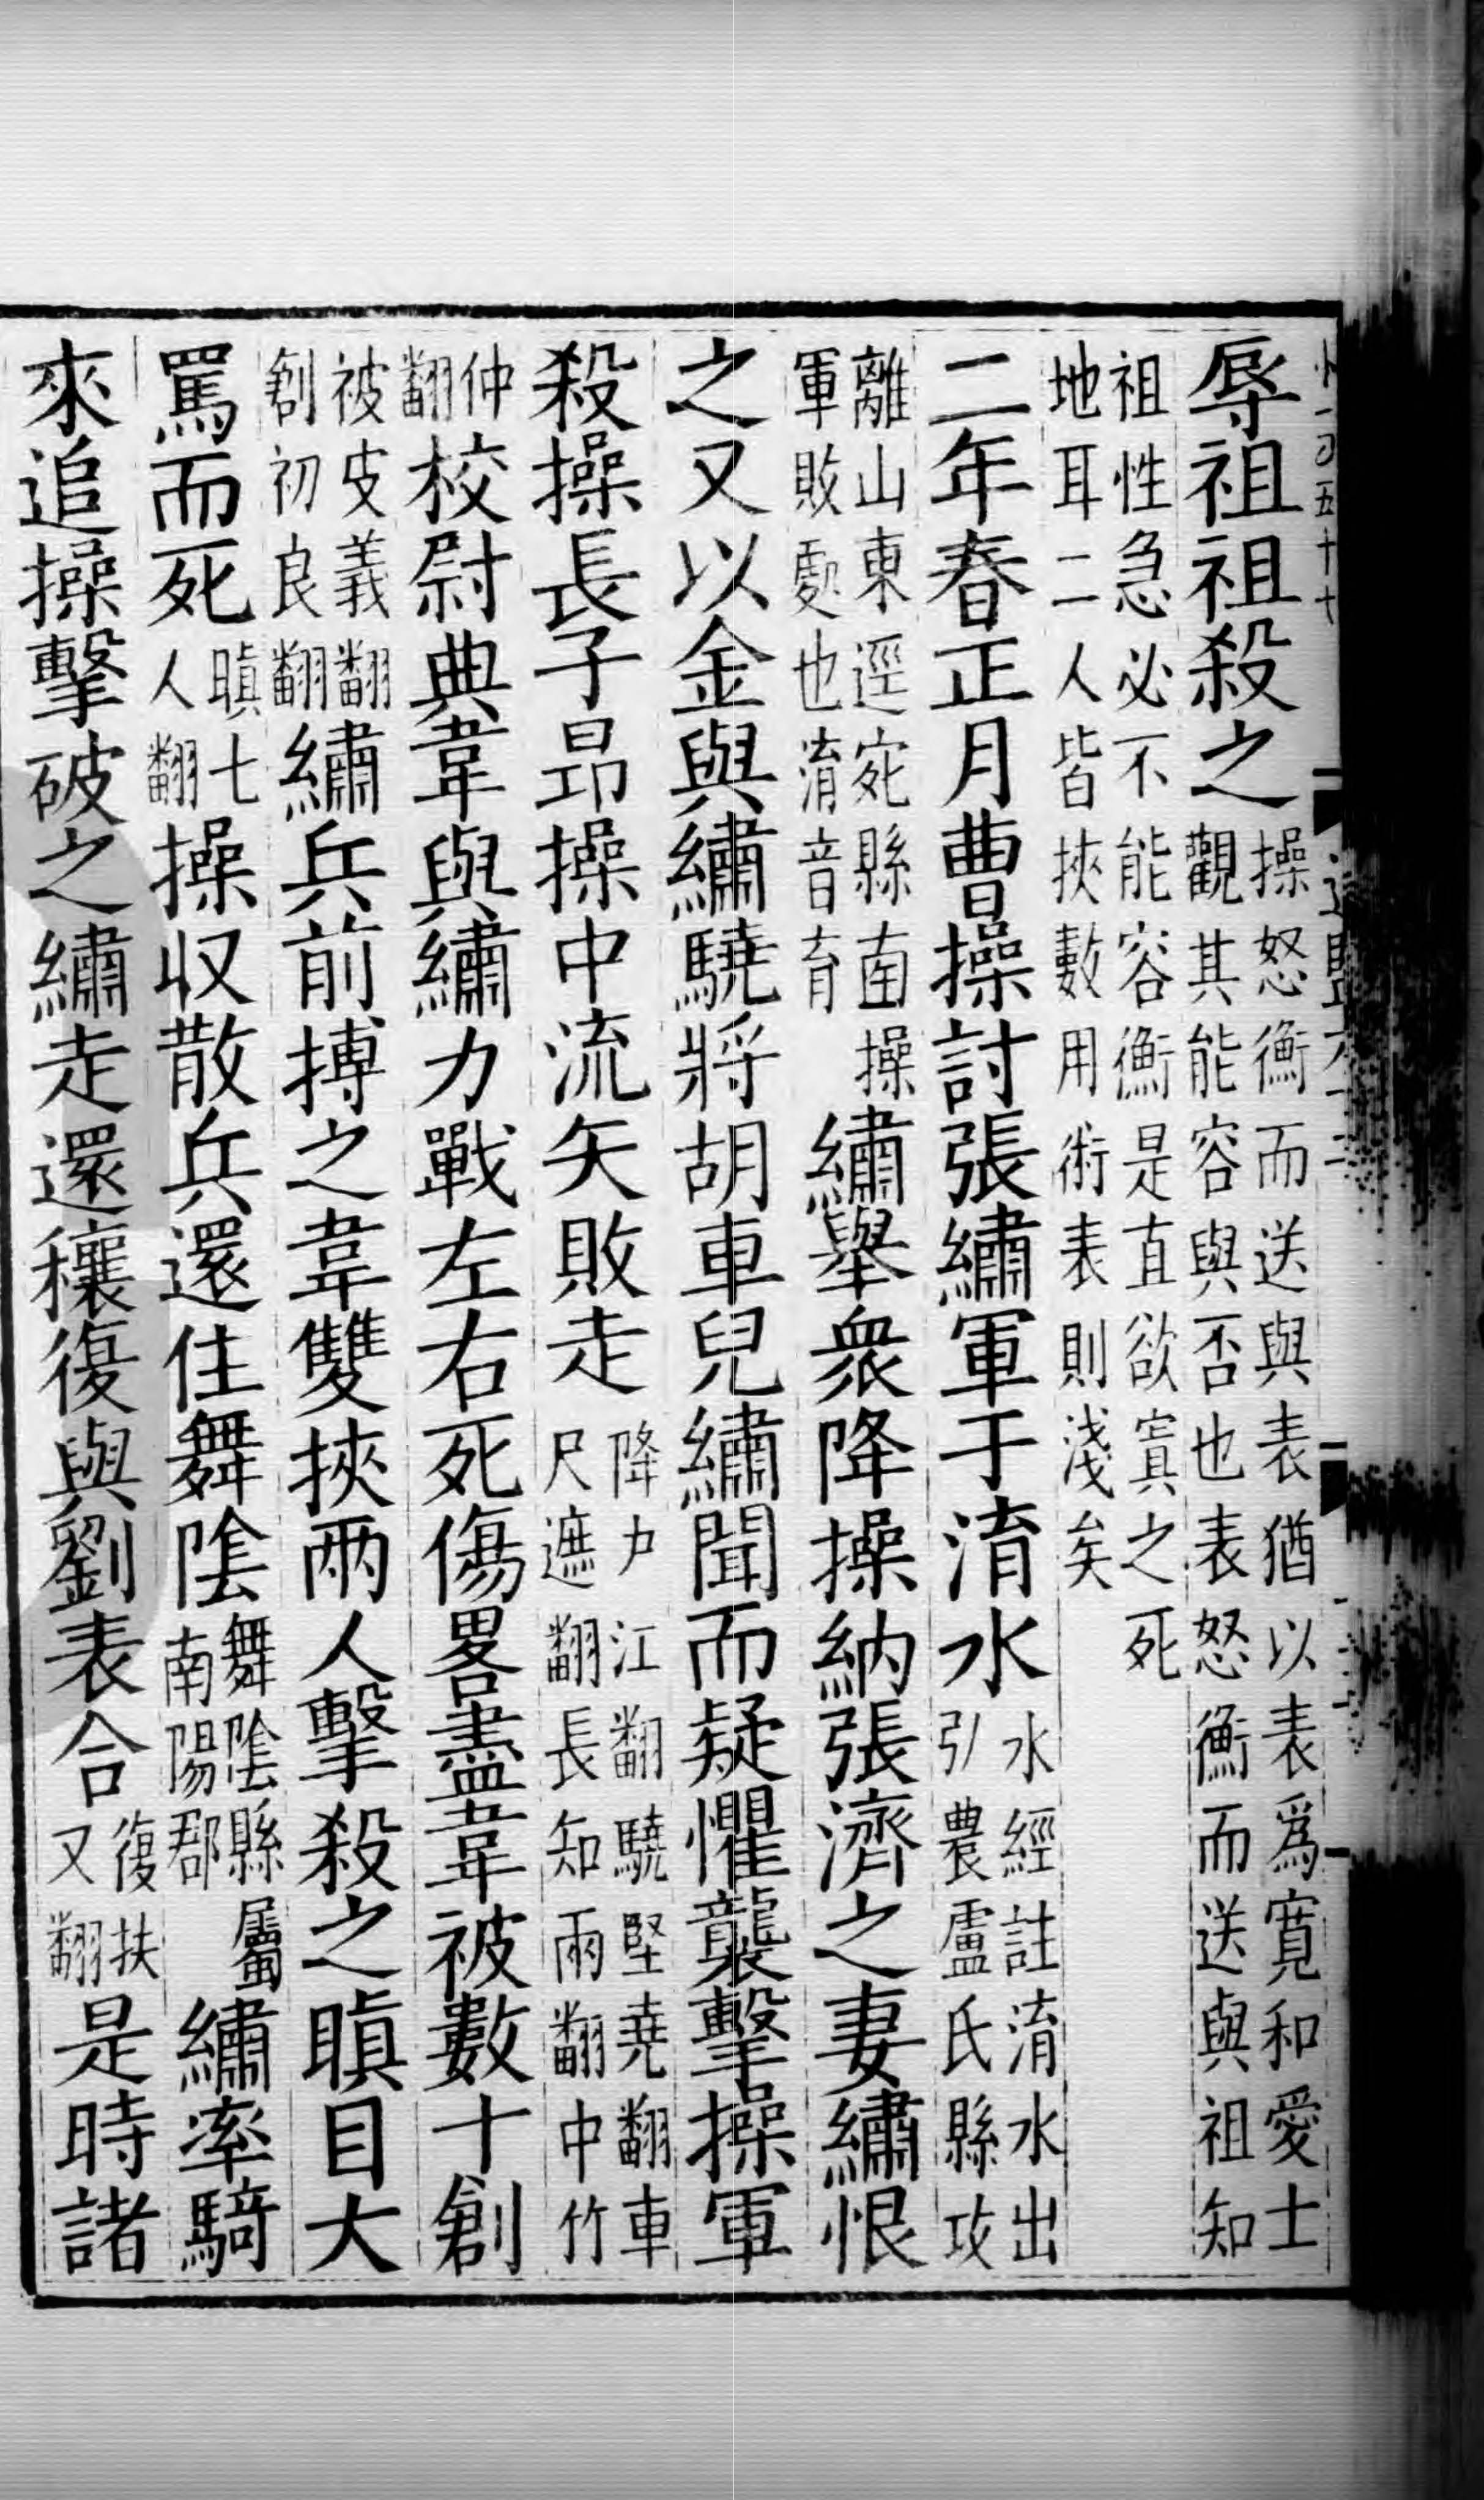 辱祖祖殺之操怒衡而送與表猶以表爲寛和愛士觀其能容與否也表怒衡而送與祖知
祖性急必不能容衡是直欲寘之死地耳二人皆挾數用術表則淺矣
二年春正月曹操討張繡軍于淯水水經註淯水出弘農盧氏縣攻
離山東逕宛縣南操軍敗處也淯音育繡舉衆降操納張濟之妻繡恨
之又以金與繡驍將胡車兒繡聞而疑懼襲擊操軍
殺操長子昻操中流矢敗走降户江翻驍堅堯翻車尺遮翻長知兩翻中竹
仲翻校尉典韋與繡力戰左右死傷畧盡韋被數十創
被皮義翻創初良翻繡兵前搏之韋雙挾兩人擊殺之瞋目大
罵而死瞋七人翻操収散兵還住舞隂舞隂縣屬南陽郡繡率騎
來追操擊破之繡走還穰復與劉表合復扶又翻是時諸